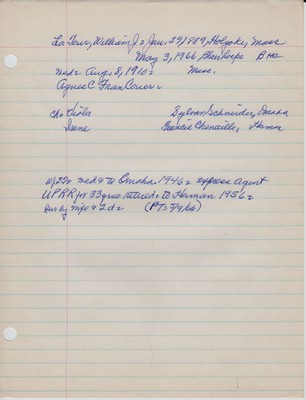 La Tour, William J. Jan. 29, 1889, Holyoke, Mass
May 3, 1966, Blair Hosp
med Aug. 8, 1910 Mass.
Agnes C. Francoeur
Ch Viola Sylvan Schneider, Omaha
Irene Francis Chenaille, Herman
med & to Omaha 1946 express agent
UPRR for 33 yrs retired to Herman 1956
Sur by wife & 2 d (PT 5/9/66)